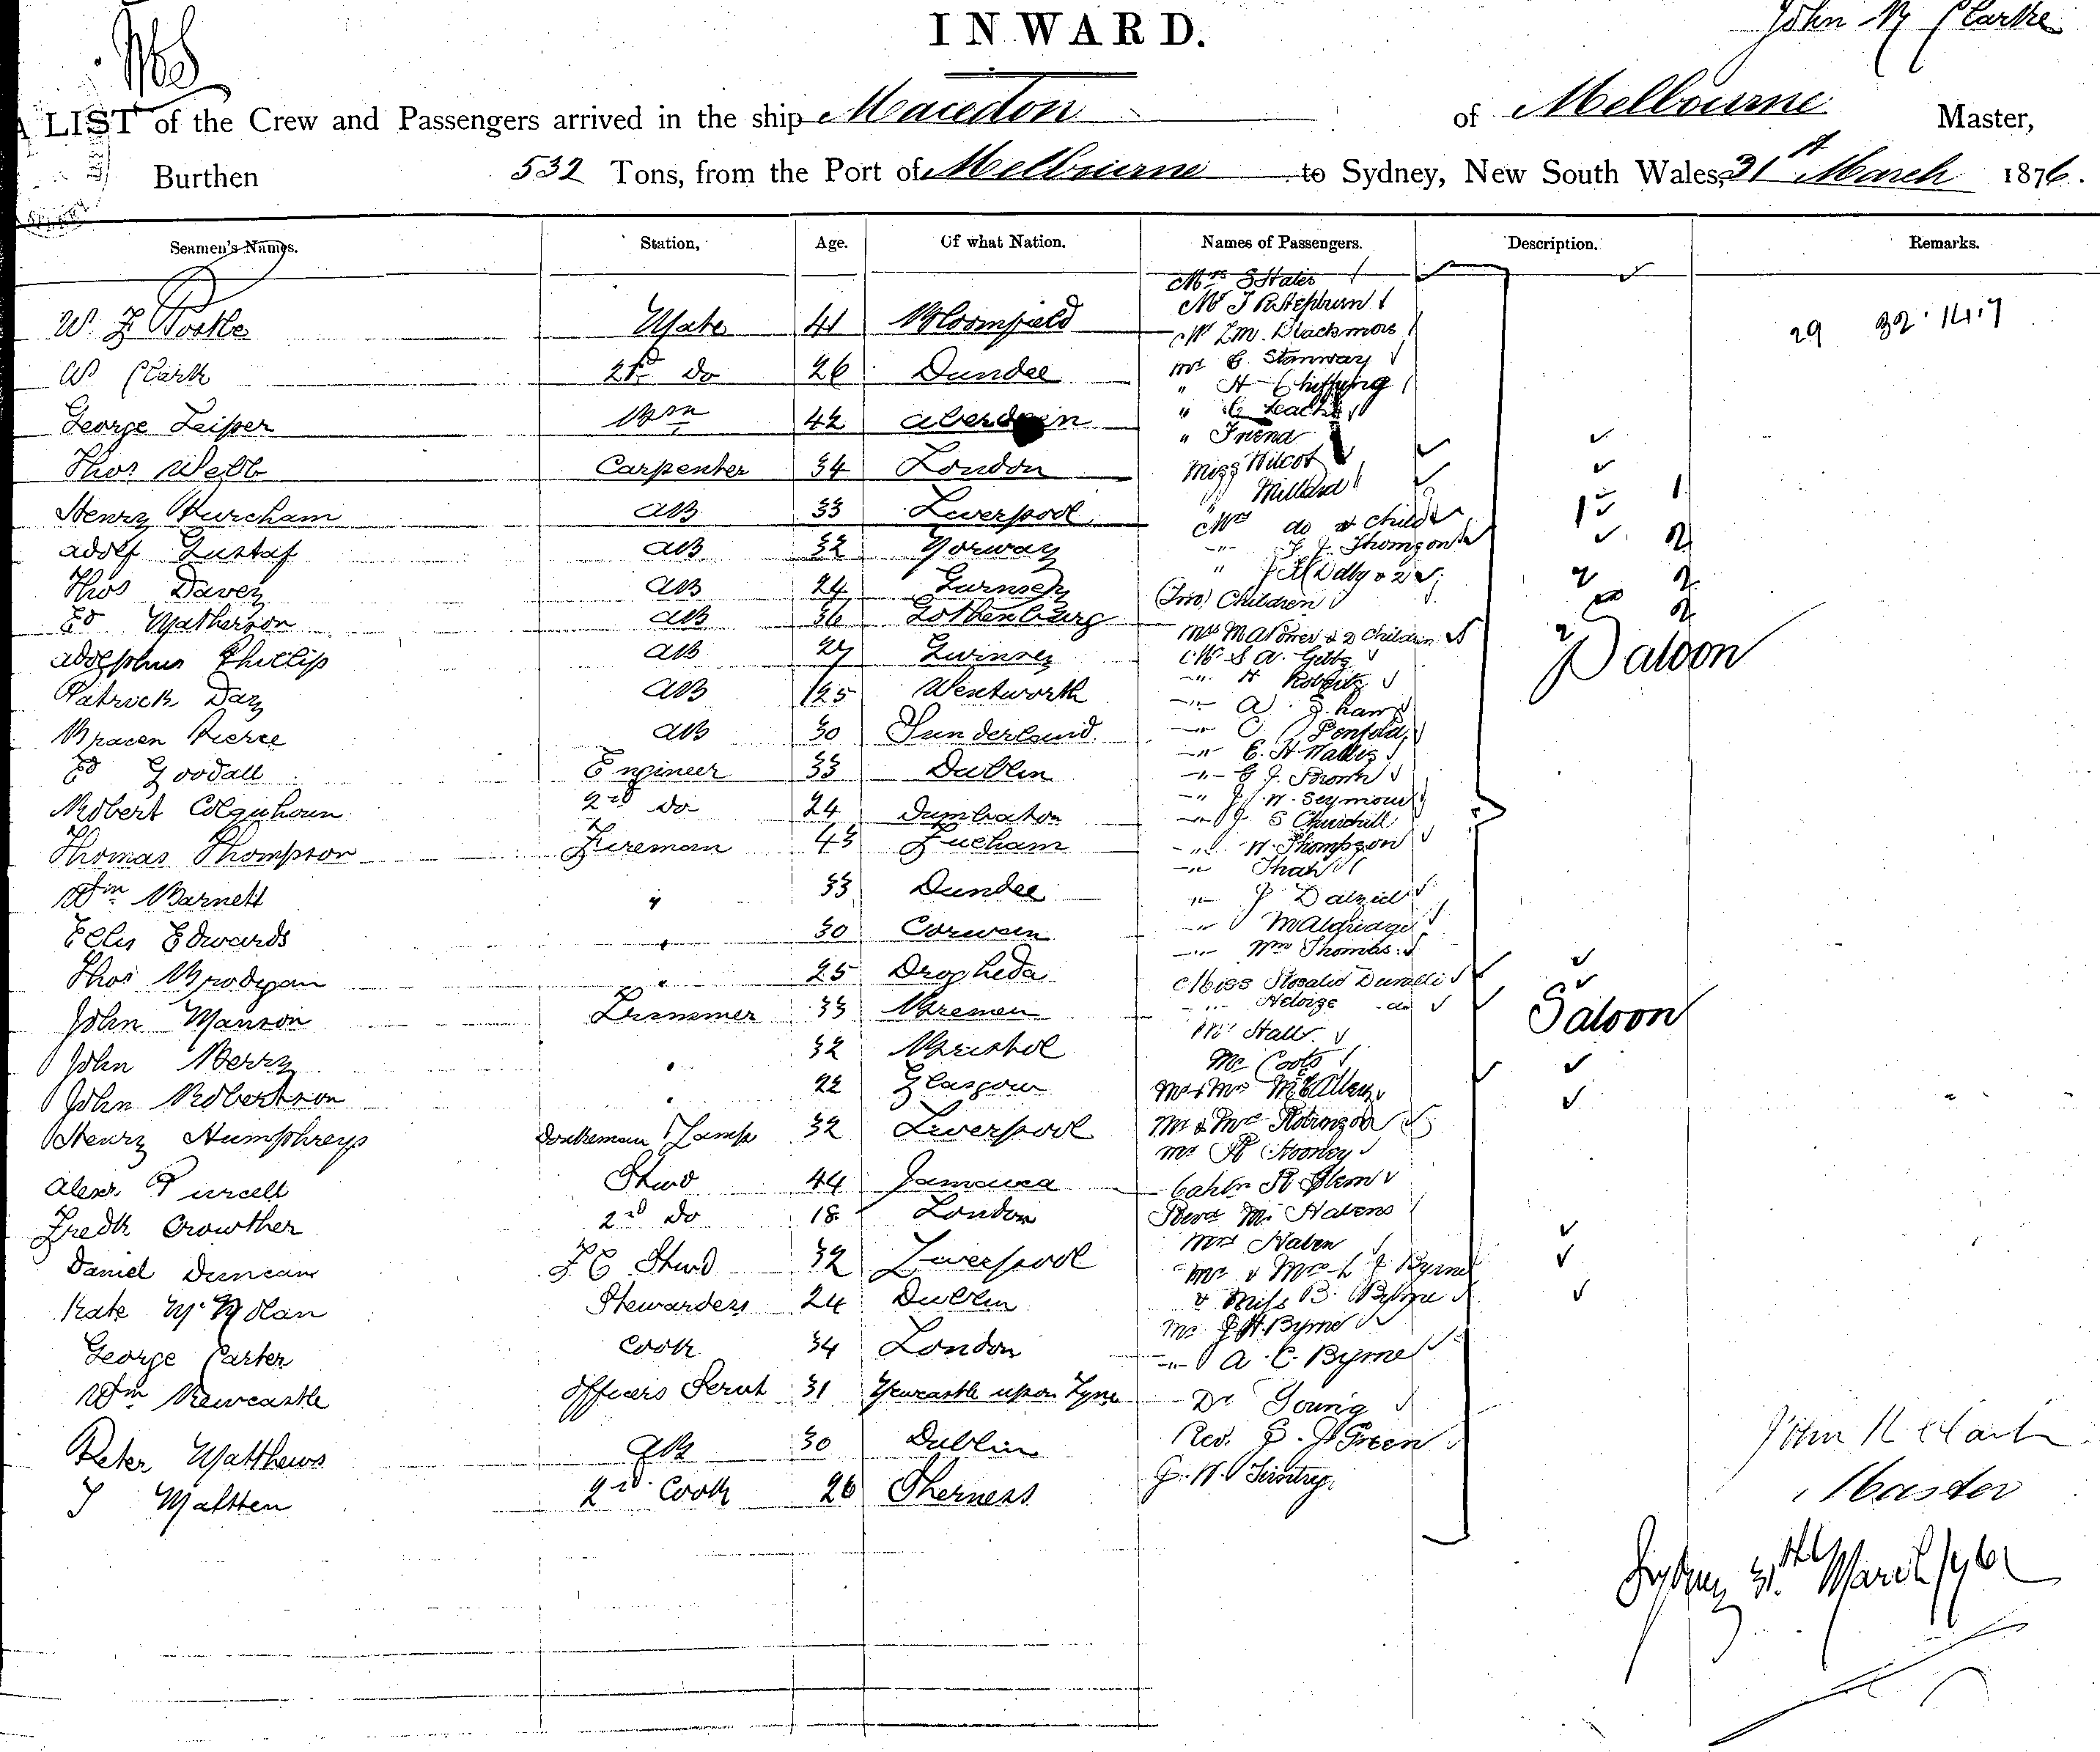 INWARD.
John R Clarke
A LIST of the Crew and Passengers arrived in the ship Macedon of Melbourne Master,
Burthen 532 Tons, from the Port of Melbourne to Sydney, New South Wales, 31st March 1876.
Seamen's Names. Station, Age. Of what Nation. Names of Passengers. Description. Remarks.
W. F. Mate 41 Bloomfield
W Clark 2nd Do 26 Dundee
George Leiper Bsn 42 Aberdeen
Thos Webb Carpenter 34 London
Henry Burcham AB 33 Liverpool
Adolf Gustaf AB 32 Norway
Thos Davey AB 24 Gurnsey
Ed Matherson AB 36 Gothenburg
Adolphus Phillip AB 27
Patrick Day AB 25 Wentworth
Pierce AB 30 Sunderland
Ed Goodall Engineer 33 Dublin
Robert Colquhoun 2nd Do 24 Dumbarton
Thomas Thompson Fireman 43
Wm Barnett " 33 Dundee
Ellis Edwards " 30 Corwen
Thos Brodigan " 25 Drogheda
John Manson Trimmer 33 Bremen
John Berry " 32 Bristol
John Robertson " 22 Glasgow
Henry Humphreys Donkeyman & Lamps 32 Liverpool
Alexr Purcell Stwd 44 Jamaica
Fredk Crowther 2nd Do 18 London
Daniel Duncan F C Stwd 32 Liverpool
Kate McNolan Stewardess 24 Dublin
George Carter Cook 34 London
Wm Newcastle Officers Servt 31 Newcastle upon Tyne
Peter Matthews AB 30 Dublin
J 2nd Cook 26 Sherness
Mrs S States
Mr J R Hepburn
Mr Wm. Blackmore
Mr E. Stanway
" H
" C Leach
" Friend
Miss Wilcot
" Millard
Mrs do & child
" J J. Thomson
" & 2
(Two) Children
Mrs & 2 Children
Mr S A. Gibbs
" H Roberts
" A Shaw
" C Penfold
" C. H Wallis
" G J. Brown
" J. W. Seymour
" J S Churchill
" W Thompson
" Shaw
" J Dalziel
" M Aldridge
" Wm Thomas
Miss Rosalie Duvalli
" Heloize do
Mr Hall
Mr Coots
Mr & Mrs
Mr & Mrs Robinson
Mr R
Captn R
Revd Mr
Mrs
Mr & Mrs L J Byrne
& Miss B. Byrne
Mr J H. Byrne
" A. C. Byrne
Dr Young
Rev. G. J. Green
G. W.
1
1 2
2 2
2 2
Saloon
Saloon
29 32.14.7
John R Clark
Master
Sydney 31st March /76